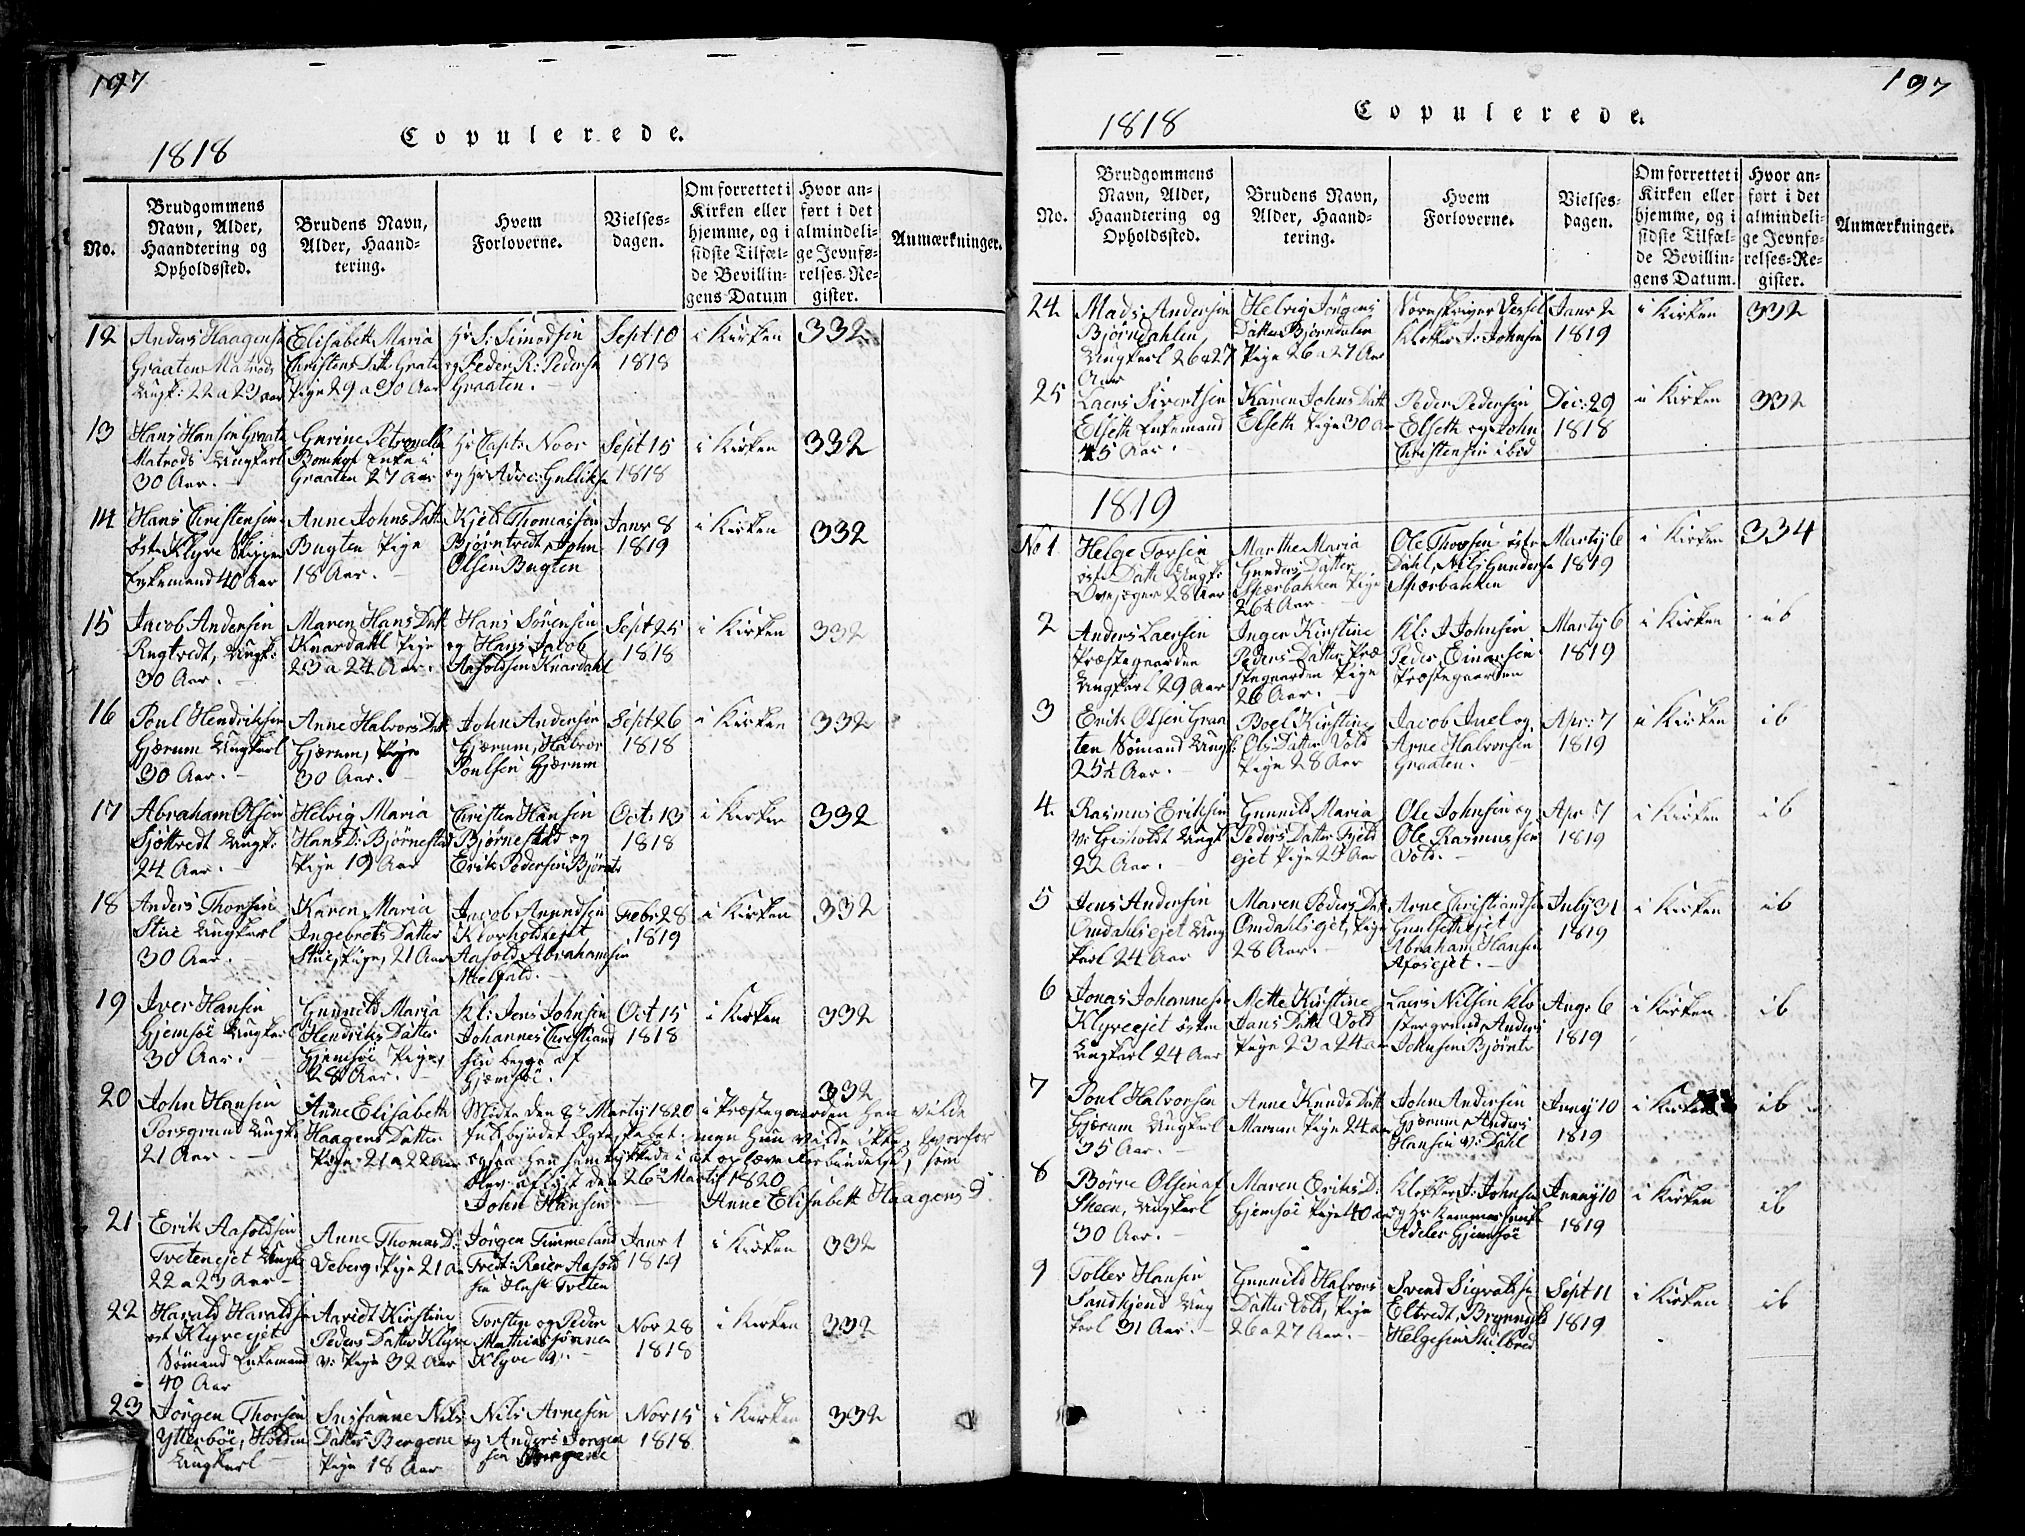 197
1818
Copulerede.
No.
Brudgommens
Navn, Alder,
Haandtering og
Opholdssted.
Brudens Navn,
Alder, Haand-
tering.
Hvem
Forloverne.
Vielses-
dagen.
Om forrettet i
Kirken eller
hjemme, og i
sidste Tilfæl-
de Bevillin-
gens Datum
Hvor an-
ført i det
almindeli-
ge Jevnfø-
relses-Re-
gister.
Anmærkninger.
12
Anders Haagensen
Graaten Matros
Ungk: 22 a 23 aar
Elisabeth Maria
Christens Datt Graaten
Pige 29 a 30 Aar
Hr S: Simonsen
og Peder R: Pedersen
Graaten.
Sept 10
1818
i Kirken
332
13
Hans Hansen Graaten
Matros Ungkarl
30 Aar.
Gurine Petronelle
Bomhof Enke i
Graaten 27 Aar
Hr Capt: Noor
og Hr Adv: Gulliks
Sept 15
1818
i Kirken
332
14
Hans Christensen
østre Klyve Skipper
Enkemand 40 Aar
Anne Johns Datt
Bugten Pige
18 Aar.
Kjeld Thomassen
Bjørntvedt, John
Olsen Bugten
Janr 8
1819
i Kirken
332
15
Jacob Andersen
Rugtvedt, Ungk:
30 Aar.
Maren Hans Datt
Knardahl Pige
23 a 24 Aar.
Hans Sørensen
og Hans Jacob
Aasoldsen Knardahl
Sept 25
1818
i Kirken
332
16
Poul Hendriksen
Gjærum Ungkarl
30 Aar.
Anne Halvors Datt
Gjærum, Pige
30 Aar.
John Andersen
Gjærum, Halvor
Poulsen Gjærum
Sept 26
1818
i Kirken
332
17
Abraham Olsen
Ungk:
24 Aar.
Helvig Maria
Hans D: Bjørnestad
Pige 19 Aar
Christen Hansen
Bjørnestad og
Erik Pedersen Bjørnts
Oct. 13
1818
i Kirken
332
18
Anders Thorsen
Stue Ungkarl
30 Aar.
Karen Maria
Ingebrets Datter
Stue, Pige, 21 Aar
Jacob Amundsen
Klovholtejet
Aasold Abrahamsen
Febr 28
1819
i Kirken
332
19
Iver Hansen
Gjemsøe Ungkarl
30 Aar.
Gunnild Maria
Hendriks Datter
Gjemsøe Pige,
28 Aar.
Kl: Jens Johnsen
Johannes Christiand
sen begge af
Gjemsøe.
Oct 15
1818
i Kirken
332
20
John Hansen
Porsgrund Ungk:
21 Aar.
Anne Elisabeth
Haagens Datter
Pige 21 a 22 Aar
332
Mødte den 8de Martij 1820 i Præstegaarden Han vilde
fuldbyrdet Ægteskabet: men Hun vilde ikke, hvorfor
ogsaa Han samtykkede i at ophæve Forbindelse, som
blev aflyst den 26 Martij 1820
John Hansen
Anne Elisabeth Haagens D
21
Erik Aasoldsen
Tvetenejet Ungk
22 a 23 Aar
Anne Thomas D:
Veberg Pige 21 Aar
Jørgen Timmeland
Janr 1
1819
i Kirken
332
22
Harald Haraldsen
øst Klyveejet
Sømand Enkemand
40 Aar
Aaridt Kirstine
Peders Datter Klyve
v: Pige 32 Aar
Torsten og Peder
Mathias sønner
Klyve
Nov 28
1818
i Kirken
332
23
Jørgen Thorsen
Ytterbøe, Holden
Ungkarl
Susanne Nils
Datter Bergene
Pige 18 Aar
Nils Arnesen
og Anders Jørgen
sen Bergene
Nov 15
1818
i Kirken
332
197
1818
Copulerede.
No.
Brudgommens
Navn, Alder,
Haandtering og
Opholdssted.
Brudens Navn,
Alder, Haand-
tering.
Hvem
Forloverne.
Vielses-
dagen.
Om forrettet i
Kirken eller
hjemme, og i
sidste Tilfæl-
de Bevillin-
gens Datum.
Hvor an-
ført i det
almindeli-
ge Jevnfø-
relses-Re-
gister.
Anmærkninger.
24
Mads Andersen
Bjørndahlen,
Ungkarl 26 a 27
Aar
Helvig Jørgens
Datter Bjørndalen
Pige 26 a 27 Aar
Sorenskriver Vessel
Klokker J: Johnsen
Janr 2
1819
i Kirken
332
25
Laers Sivertsen
Elseth Enkemand
45 Aar.
Karen Johns Datt
Elseth Pige 30 Aar
Peder Pedersen
Elseth og John
Christensen ibid
Dec: 29
1818
i Kirken
332
1819
No 1
Helge Torsen
øst Dahl Ungk:
28 Aar
Marthe Maria
Gunders Datter
Sperbakken Pige
26½ Aar
Ole Thorsen østre
Dahl, Nils Gundersen
Sperbakken
Martij 6
1819
i Kirken
334
2
Anders Laersen
Præstegaarden
Ungkarl 29 Aar
Inger Kirstine
Peders Datter Præ
stegaarden Pige
26 Aar.
Kl: J Johnsen
Peder Einersen
Præstegaarden
Martij 6
1819
i Kirken
ib
3
Erik Olsen Graa
ten Sømand Ungk:
25½ Aar.
Boel Kirstine
Ols Datter Vold
Pige 28 Aar
Jacob Juel og
Arne Halvorsen
Graaten.
Apr: 7
1819
i Kirken
ib
4.
Rasmus Eriksen
v: Grisholdt Ungk
22 Aar.
Gunnild Maria
Peders Datter Fjeld
ejet Pige 27 Aar
Ole Johnsen og
Ole Rasmussen
Vold.
Apr 7
1819
i Kirken
ib
5
Jens Andersen
Omdahlsejet Ung
karl 24 Aar
Maren Peders Datt
Omdahlsejet, Pige
28 Aar.
Arne Christiandsen
Gunsethejet
Abraham Hansen
Afosejet.
July 31
1819
i Kirken
ib
6
Jonas Johannesen
Klyveejet østre
Ungkarl 24 Aar
Mette Kirstine
Jans Datt Vold
Pige 23 a 24 aar
Laers Nilsen Klo
stergrund, Anders
Johnsen Bjørnts
Aug: 6
1819
i Kirken
ib
7
Poul Halvorsen
Gjærum Ungkarl
35 Aar.
Anne Kunds Datt
Marum Pige 24 aar
John Andersen
Gjærum, Anders
Hansen v: Dahl
Juny 10
1819
i Kirken
ib
8
Børre Olsen af
Skeen, Ungkarl
30 Aar.
Maren Eriks D:
Gjemsøe Pige 40 aar
Klokker J: Johnsen
og Hr Kammerjunk
Adeler Gjemsøe
Juny 10
1819
i Kirken
ib
9
Tollev Hansen
Sandkjend Ung
karl 31 Aar.
Gunnild Halvors
Datter Vold, Pige
26 a 27 Aar.
Svend Sigvaldsen
Eltvedt, Brynnild
Helgesen Skilbred
Sept 11
1819
i Kirken
ib